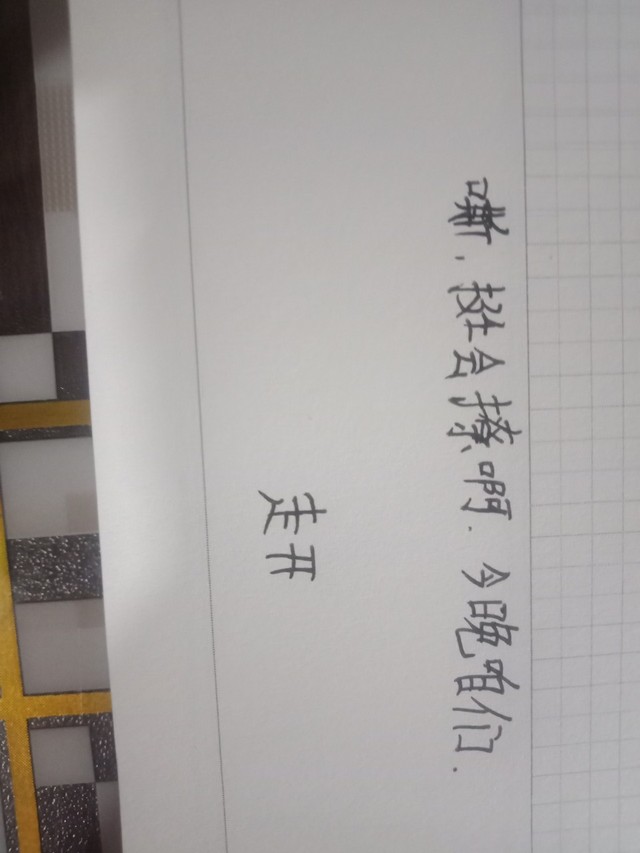 嘶，挺会撩啊.今晚咱们.
走开